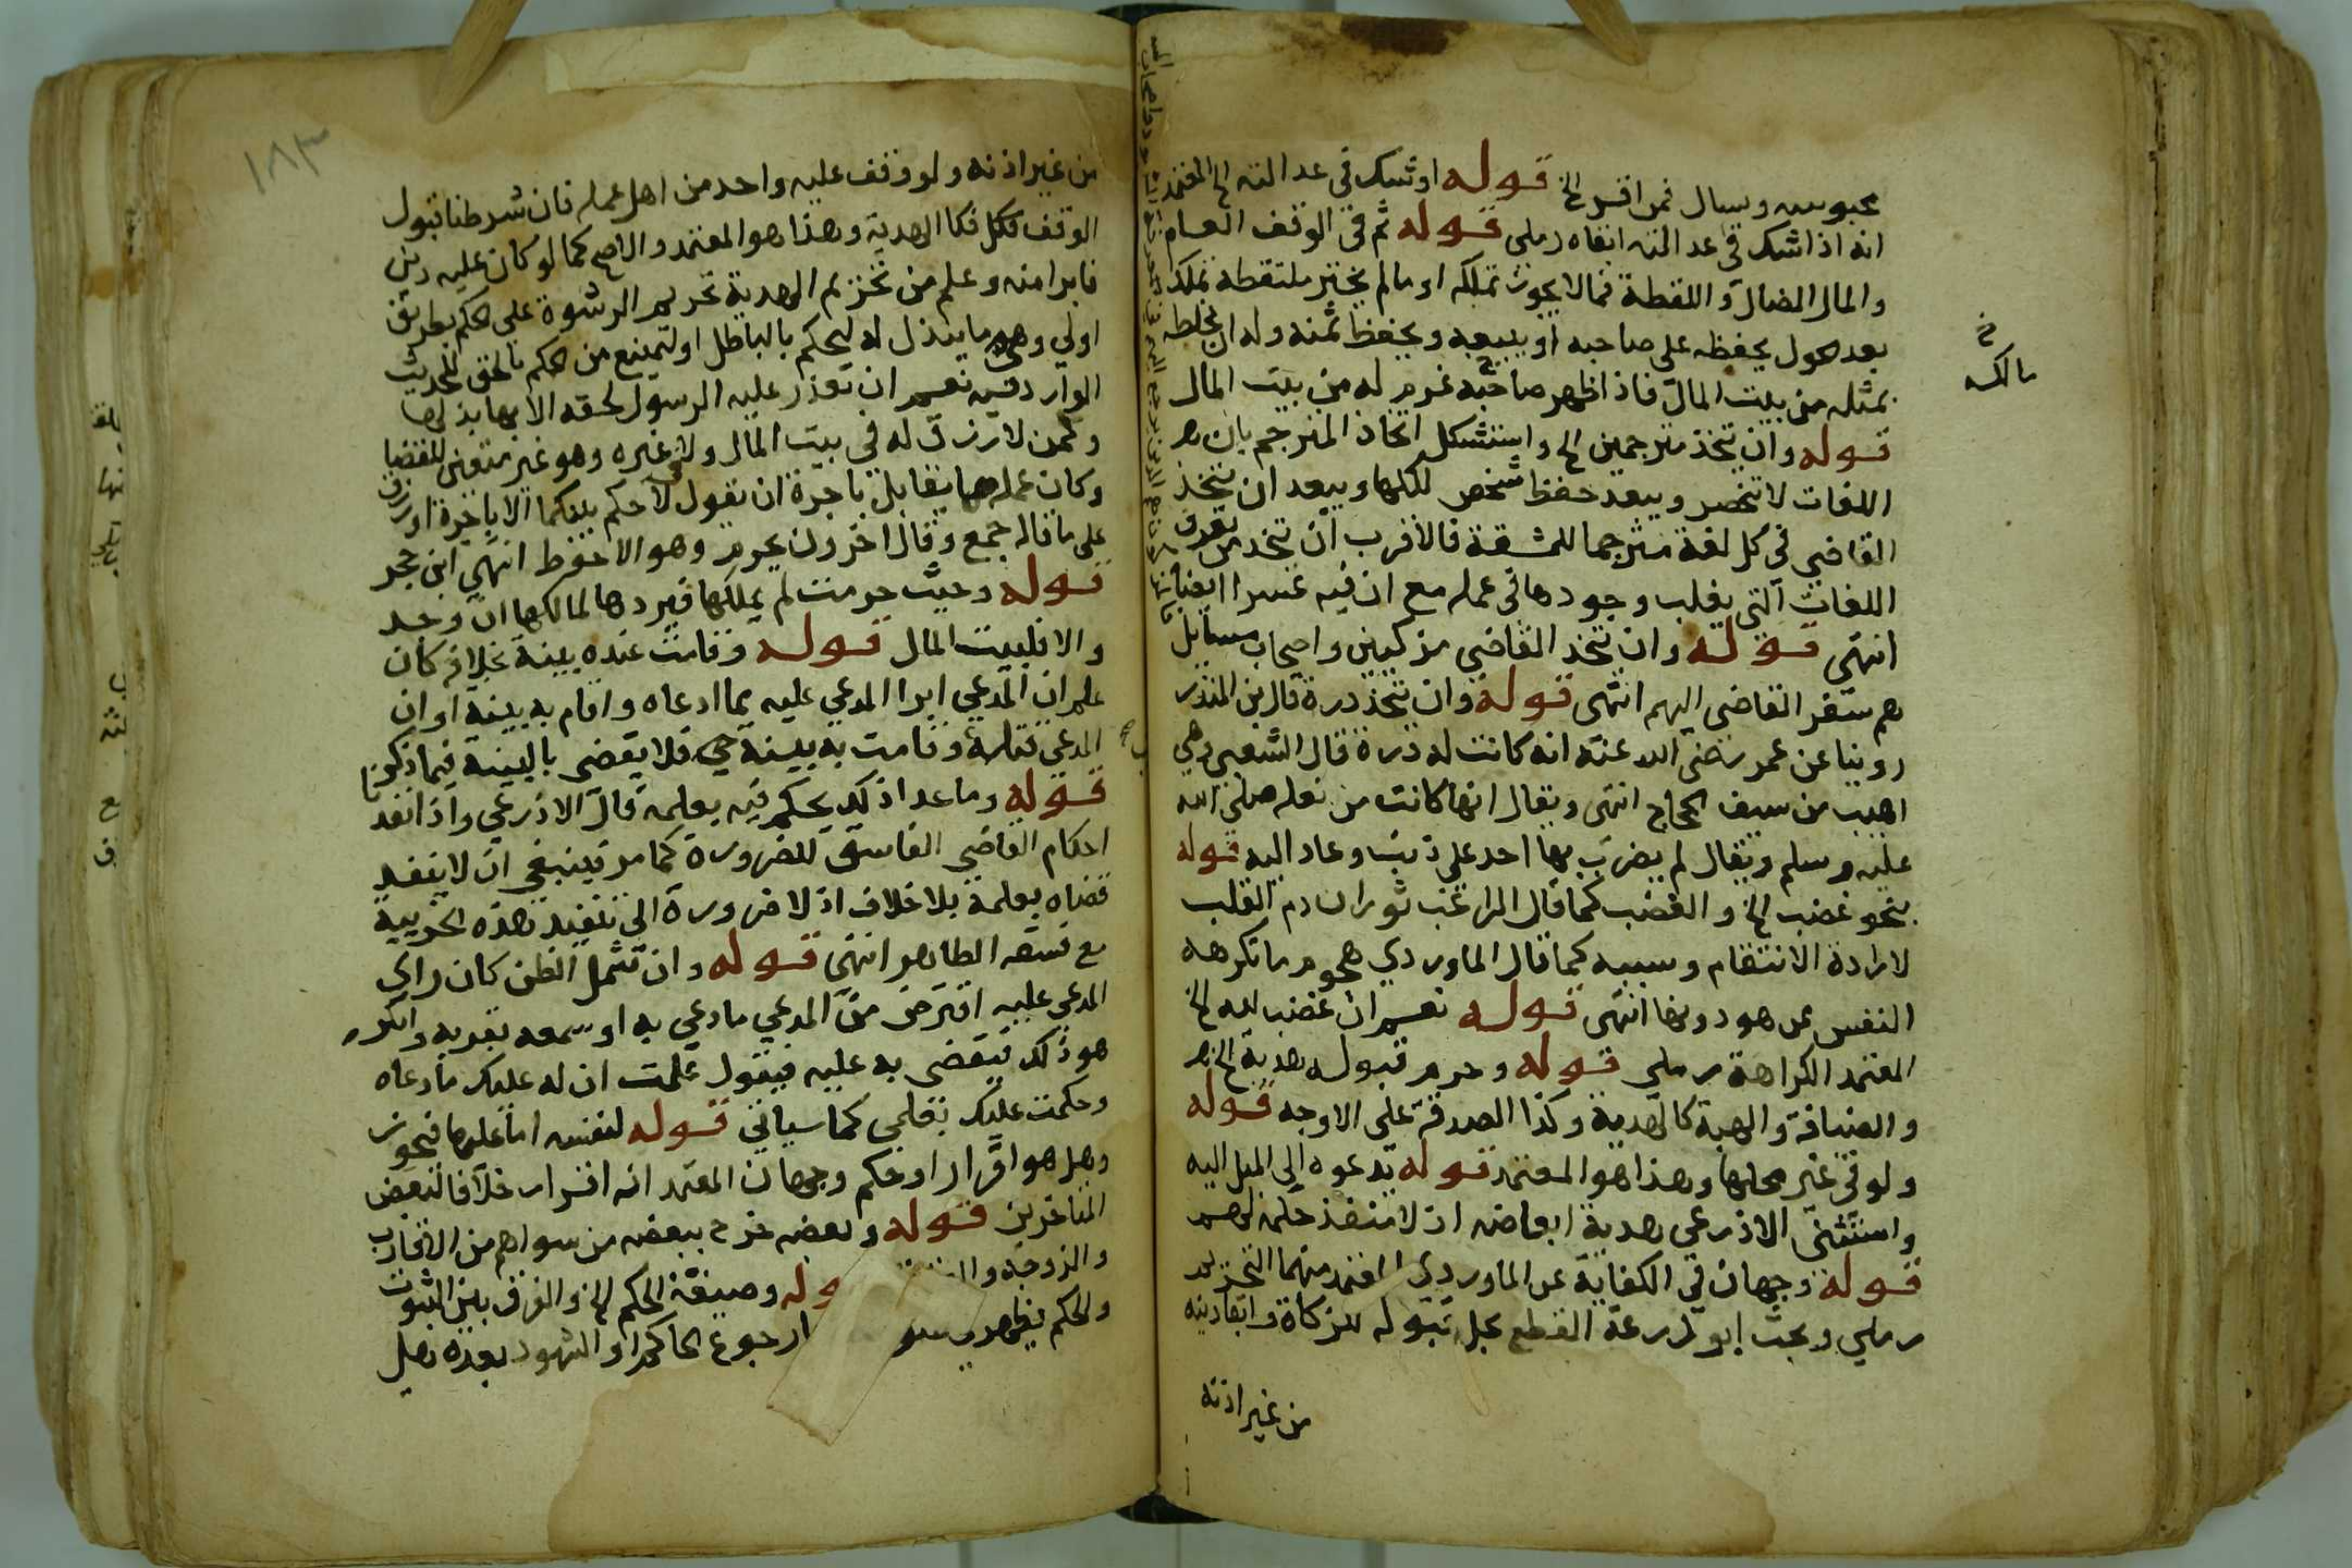 محبوسيه ويسال فمن اقر الخ قوله او شك في عدالته الخ المعتمد
انه اذا شك في عدالته ابقاه رملي قوله ثم في الوقف العام
والمال الضال واللقطة فما لا يجوز تملكه او مالم يختر ملتقطه تملكه
بعد الحول يحفظه على صاحبه او يبيعه ويحفظ ثمنه وله ان يخلطه
بمثله من بيت المال فاذا ظهر صاحبه غرم له من بيت المال
قوله وان يتخذ مترجمين الخ واستشكل اتخاذ المترجم بان
اللغات لا تنحصر ويبعد حفظ شخص لكلها ويبعد ان يتخذ
القاضي في كل لغة مترجما للمشقة فالاقرب ان يتخذ من يعرف
اللغات التي يغلب وجودها في عمله مع ان فيه عسرا ايضا
انتهى قوله وان يتخذ القاضي مزكيين واصحاب مسايل
هم سفر القاضي اليهم انتهى قوله وان يتخذ درة قال بن المنذر
روينا عن عمر رضي الله عنه انه كانت له درة قال الشعبي وهي
اهيب من سيف الحجاج انتهى ويقال انها كانت من نعله صلى الله
عليه وسلم ويقال لم يضرب بها احد على ذنب وعاد اليه قوله
بنحو غضب الخ والغضب كما قال الراغب ثوران دم القلب
لارادة الانتقام وسببه كما قال الماوردي هجوم ما تكرهه
النفس عن هو دونها انتهى قوله نعم ان غضب لله الخ
المعتمد الكراهة رملي قوله وحرم قبوله هدية الخ
والضيافة والهبة كالهدية وكذا الصدقة على الاوجه قوله
ولو في غير محلها وهذا هو المعتمد قوله تدعوه الى الميل اليه
واستثنى الاذرعي هدية ابعاضه اذ لا ينفذ حكمه لهم
قوله وجهان في الكفاية عن الماوردي المعتمد منهما التحريم
رملي وبحث ابو زرعة القطع بحل قبوله للزكاة وايفا دينه
من غير اذنه
مالكه
١٨٣
من غير اذنه ولو وقف عليه واحد من اهل عمله فان شرطنا قبول
الوقف فكل فكالهدية وهذا هو المعتمد والاصح كما لو كان عليه دين
فابرا منه وعلم من تحريم الهدية تحريم الرشوة على الحكم بطريق
اولى وهي ما يبذل له ليحكم بالباطل او ليمتنع من الحكم بالحق للحديث
الوارد فيه نعم ان تعذر عليه الرسول لحقه الا بها بذلها
ولمن لا رزق له في بيت المال ولا غيره وهو غير متعين للقضا
وكان عمله مما يقابل باجرة ان يقول لا احكم بينكما الا باجرة او رزق
على ما قاله جمع وقال اخرون يحرم وهو الاحفظ انتهى ابن حجر
قوله وحيث حرمت لم يملكها فيردها لمالكها ان وجد
والا فلبيت المال قوله وقامت عنده بينة بخلافه كان
علم ان المدعي ابرا المدعى عليه مما ادعاه واقام به بينة او ان
المدعى قتله وقامت به بينة حي فلا يقضى بالبينة فيما ذكرنا
قوله وما عدا ذلك يحكم فيه بعلمه قال الاذرعي واذا نفذنا
احكام القاضي الفاسق للضرورة كما مر فينبغي ان لا ينفذ
قضاه بعلمه بلا خلاف اذ لا ضرورة الى تنفيذ هذه الجزيية
مع فسقه الظاهر انتهى قوله وان تشمل الظن كان راى
المدعى عليه اقترض من المدعي ما ادعى به او سمعه يقر به وانكر
هو ذلك فيقضي به عليه فيقول علمت ان له عليك ما ادعاه
وحكمت عليك بعلمي كما سياتي قوله لنفسه اما عليها فيجوز
وهل هو اقرار او حكم وجهان المعتمد انه اقرار خلافا لبعض
المتاخرين قوله وبعضه خرج ببعضه من سواهم من الاقارب
والزوجة وصيغة الحكم الخ والفرق بين الثبوت
والحكم رجوع الحاكم او الشهود بعده هل